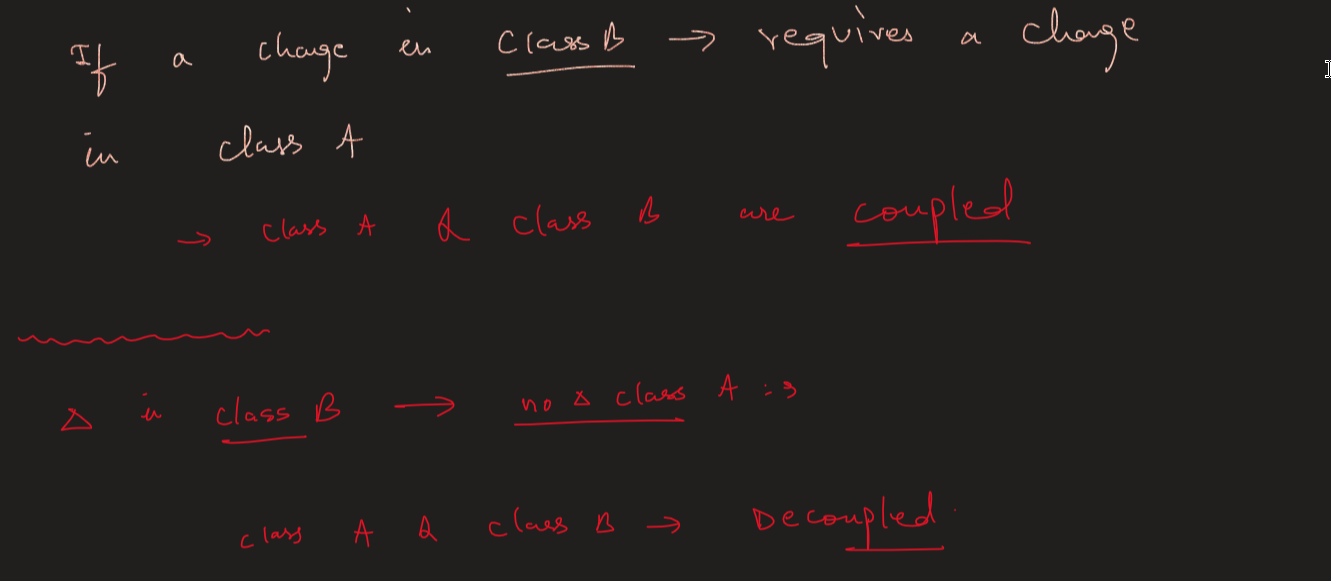 If a change in Class B → requires a change
in class A
→ class A & class B are coupled
Δ in class B → no Δ class A :
class A & class B → Decoupled.